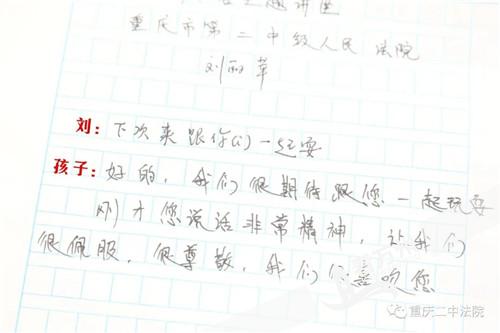 主题讲座
重庆市第二中级人民法院
刘丽萍
刘：下次来跟你们一起耍
孩子：好的，我们很期待跟您一起玩耍
刚才您说话非常精神，让我们
很佩服，很尊敬，我们 您
重庆二中法院